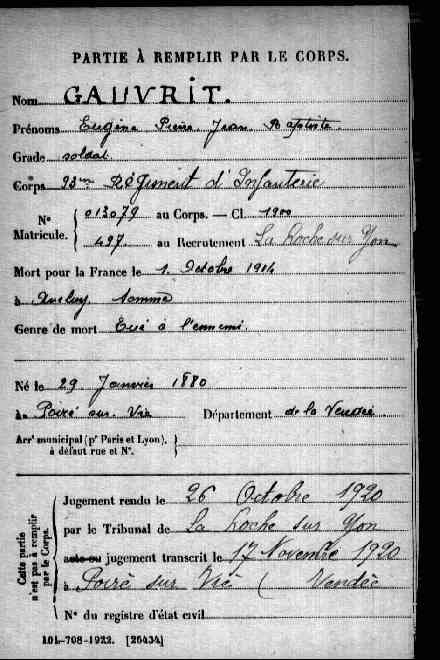 PARTIE À REMPLIR PAR LE CORPS.
Nom GAUVRIT.
Prénoms Eugène Pierre Jean Baptiste
Grade soldat
Corps 93me Régiment d'Infanterie
N° Matricule. { 013079 au Corps. — Cl. 1900
497 au Recrutement La Roche sur Yon
Mort pour la France le 1 Octobre 1914
à Aveluy Somme
Genre de mort Tué à l'ennemi.
Né le 29 Janvier 1880
à Poiré sur Vie Département de la Vendée
Arrt municipal (pr Paris et Lyon), à défaut rue et N°. }
Cette partie n'est pas à remplir par le Corps.
Jugement rendu le 26 Octobre 1920
par le Tribunal de La Roche sur Yon
acte ou jugement transcrit le 17 Novembre 1920
à Poiré sur Vie ( Vendée
N° du registre d'état civil
101-708-1922. [26434]